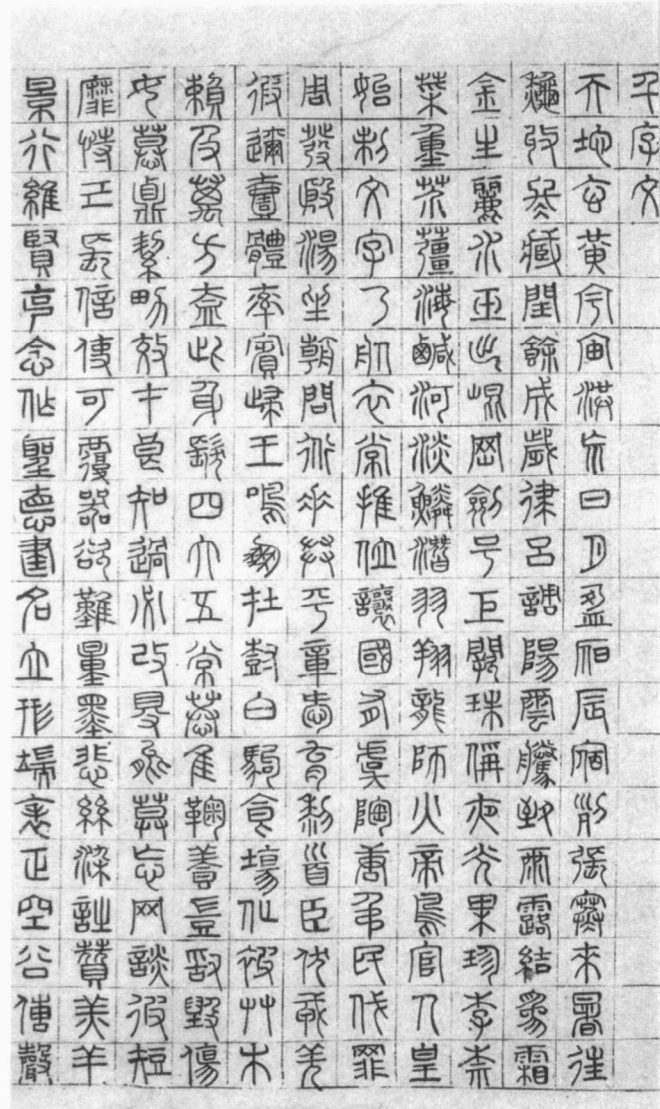 千字文
天地玄黃宇宙洪荒日月盈昃辰宿列張寒來暑往
秋收冬藏閏餘成歲律呂調陽雲騰致雨露結為霜
金生麗水玉出崑岡劍号巨闕珠稱夜光果珍李柰
菜重芥薑海鹹河淡鱗潛羽翔龍師火帝鳥官人皇
始制文字乃服衣裳推位讓國有虞陶唐弔民伐罪
周發殷湯坐朝問道垂拱平章愛育黎首臣伏戎羌
遐邇壹體率賓歸王鳴鳳在樹白駒食場化被艸木
賴及萬方蓋此身髮四大五常恭惟鞠養豈敢毀傷
女慕貞絜男效才良知過必改得能莫忘网談彼短
靡恃己長信使可覆器欲難量墨悲絲染詩贊羔羊
景行維賢克念作聖德建名立形端表正空谷傳聲